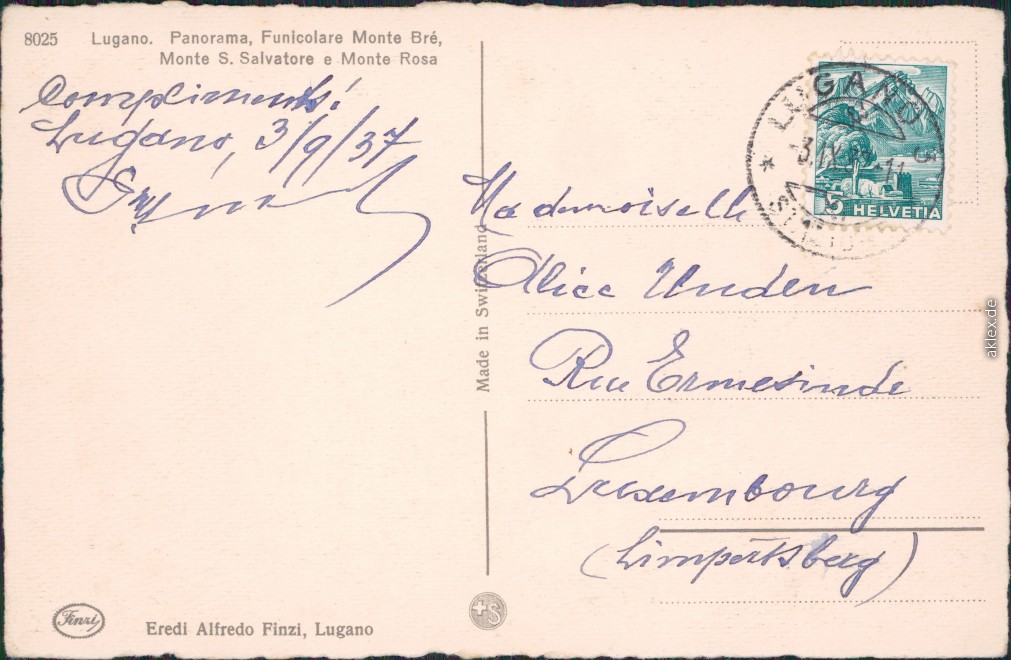 8025 Lugano. Panorama, Funicolare Monte Bré,
Monte S. Salvatore e Monte Rosa
Compliments!
Lugano, 3/9/37
Mademoiselle
Alice Unden
Rue Ermesinde
Luxembourg
(Limpertsberg)
Made in Switzerland
LUGANO
3.IX.
-11
5 HELVETIA
aklex.de
Finzi
Eredi Alfredo Finzi, Lugano
+S